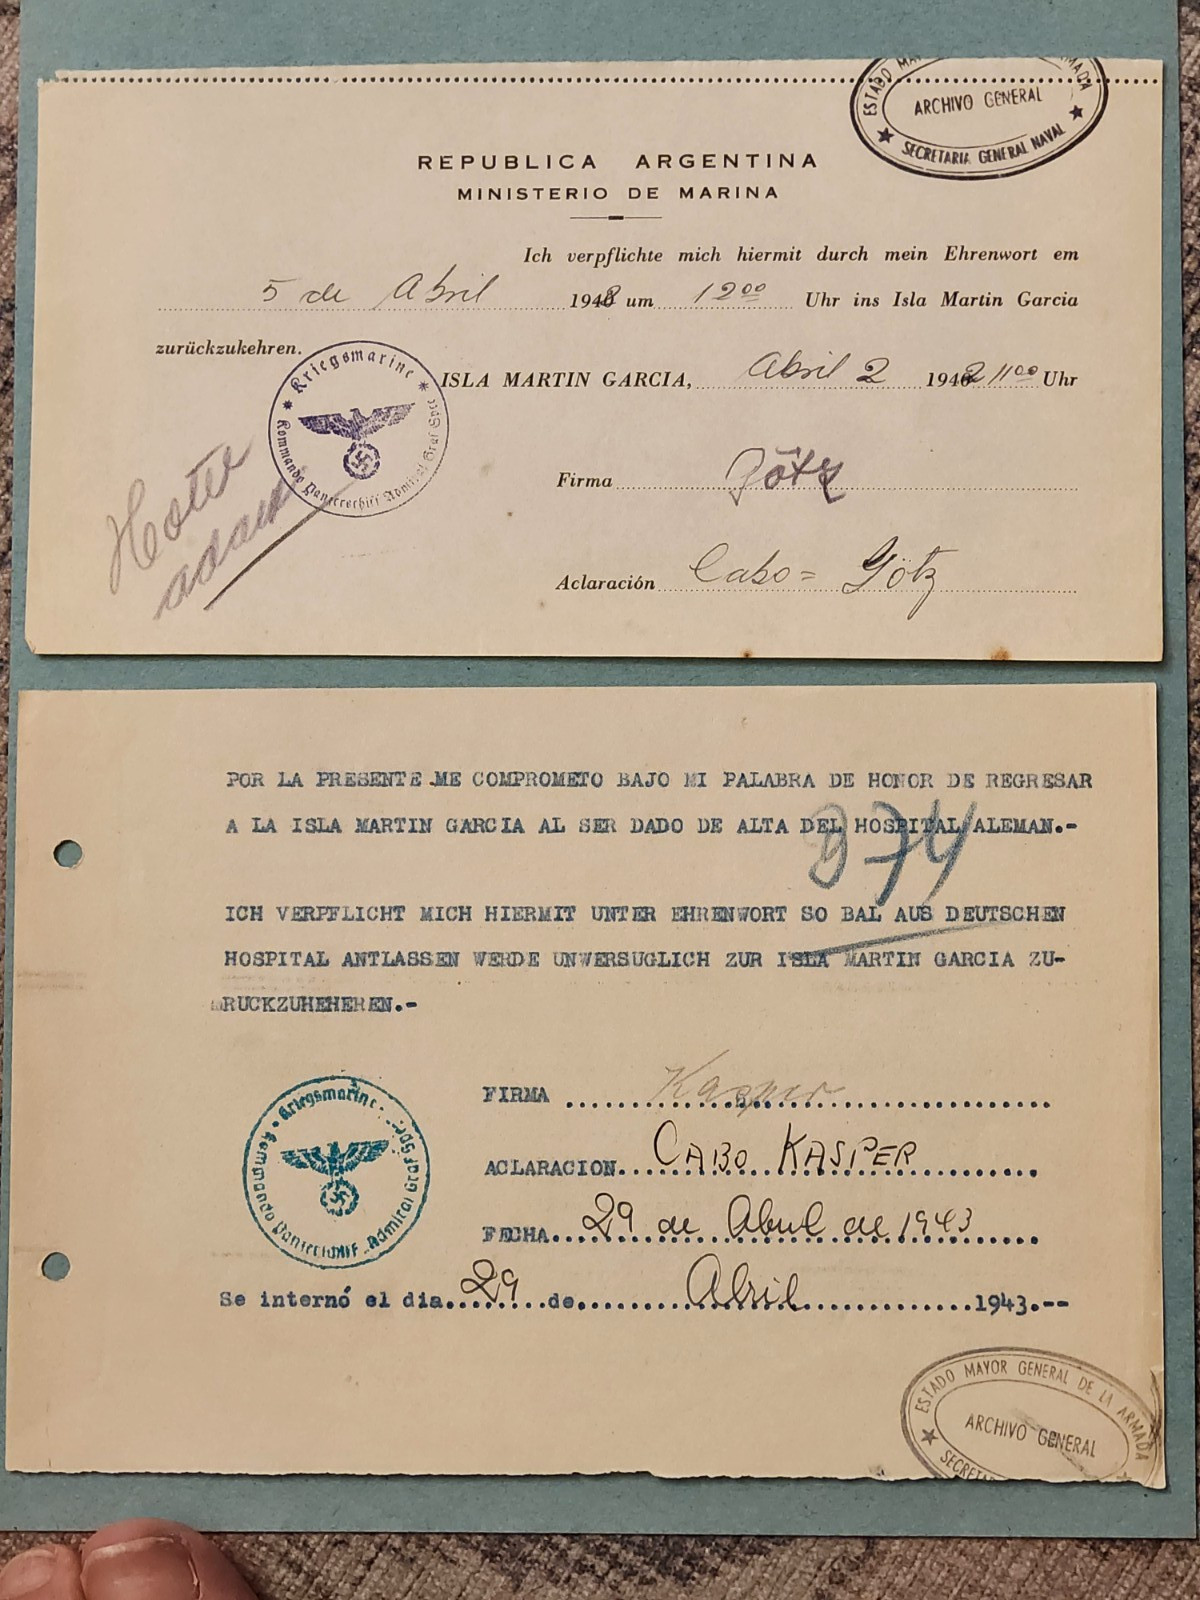 ESTADO MA MADA
ARCHIVO GENERAL
SECRETARIA GENERAL NAVAL
REPUBLICA ARGENTINA
MINISTERIO DE MARINA
Ich verpflichte mich hiermit durch mein Ehrenwort em
5 de Abril 1942 um 12 00 Uhr ins Isla Martin Garcia
zurückzukehren.
Kriegsmarine
Kommando Panzerschiff Admiral Graf Spee
ISLA MARTIN GARCIA, Abril 2 1942 11 00 Uhr
Hotel
Firma Götz
Aclaración Cabo = Götz
POR LA PRESENTE ME COMPROMETO BAJO MI PALABRA DE HONOR DE REGRESAR
A LA ISLA MARTIN GARCIA AL SER DADO DE ALTA DEL HOSPITAL ALEMAN.-
974
ICH VERPFLICHT MICH HIERMIT UNTER EHRENWORT SO BAL AUS DEUTSCHEN
HOSPITAL ANTLASSEN WERDE UNWERSUGLICH ZUR ISLA MARTIN GARCIA ZU-
RUCKZUHEHEREN.-
Kriegsmarine
Kommando Panzerschiff Admiral Graf Spee
FIRMA Kasper
ACLARACION CABO KASPER
FECHA 29 de Abril de 1943
Se internó el dia 29 de Abril 1943.--
ESTADO MAYOR GENERAL DE LA ARMADA
ARCHIVO GENERAL
SECRETA